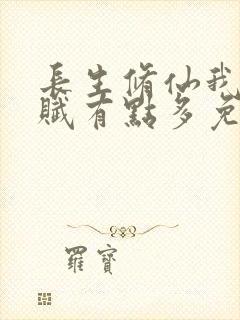 長生脩仙我
賦有點多免
羅寶